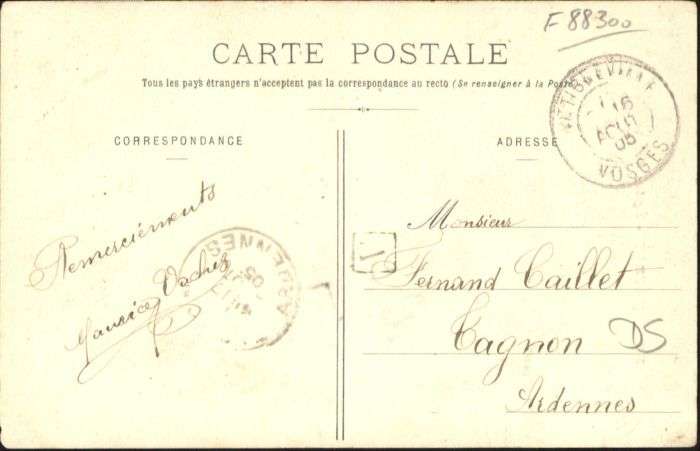 F 88300
CARTE POSTALE
Tous les pays étrangers n'acceptent pas la correspondance au recto (Se renseigner à la Poste)
CORRESPONDANCE
ADRESSE
16
AOUT
05
VOSGES
Remerciements
Maurice
ARDENNES
05
Monsieur
Fernand Caillet
Tagnon
DS
Ardennes